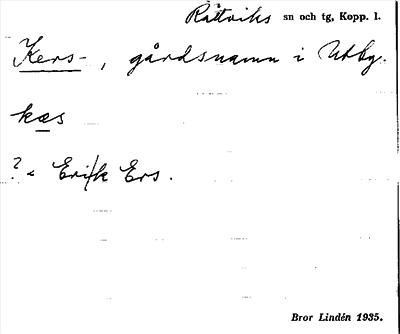 Rättviks sn och tg, Kopp. l.
Kers-, gårdsnamn i Utby.
kæs
? < Erik Ers.
Bror Lindén 1935.